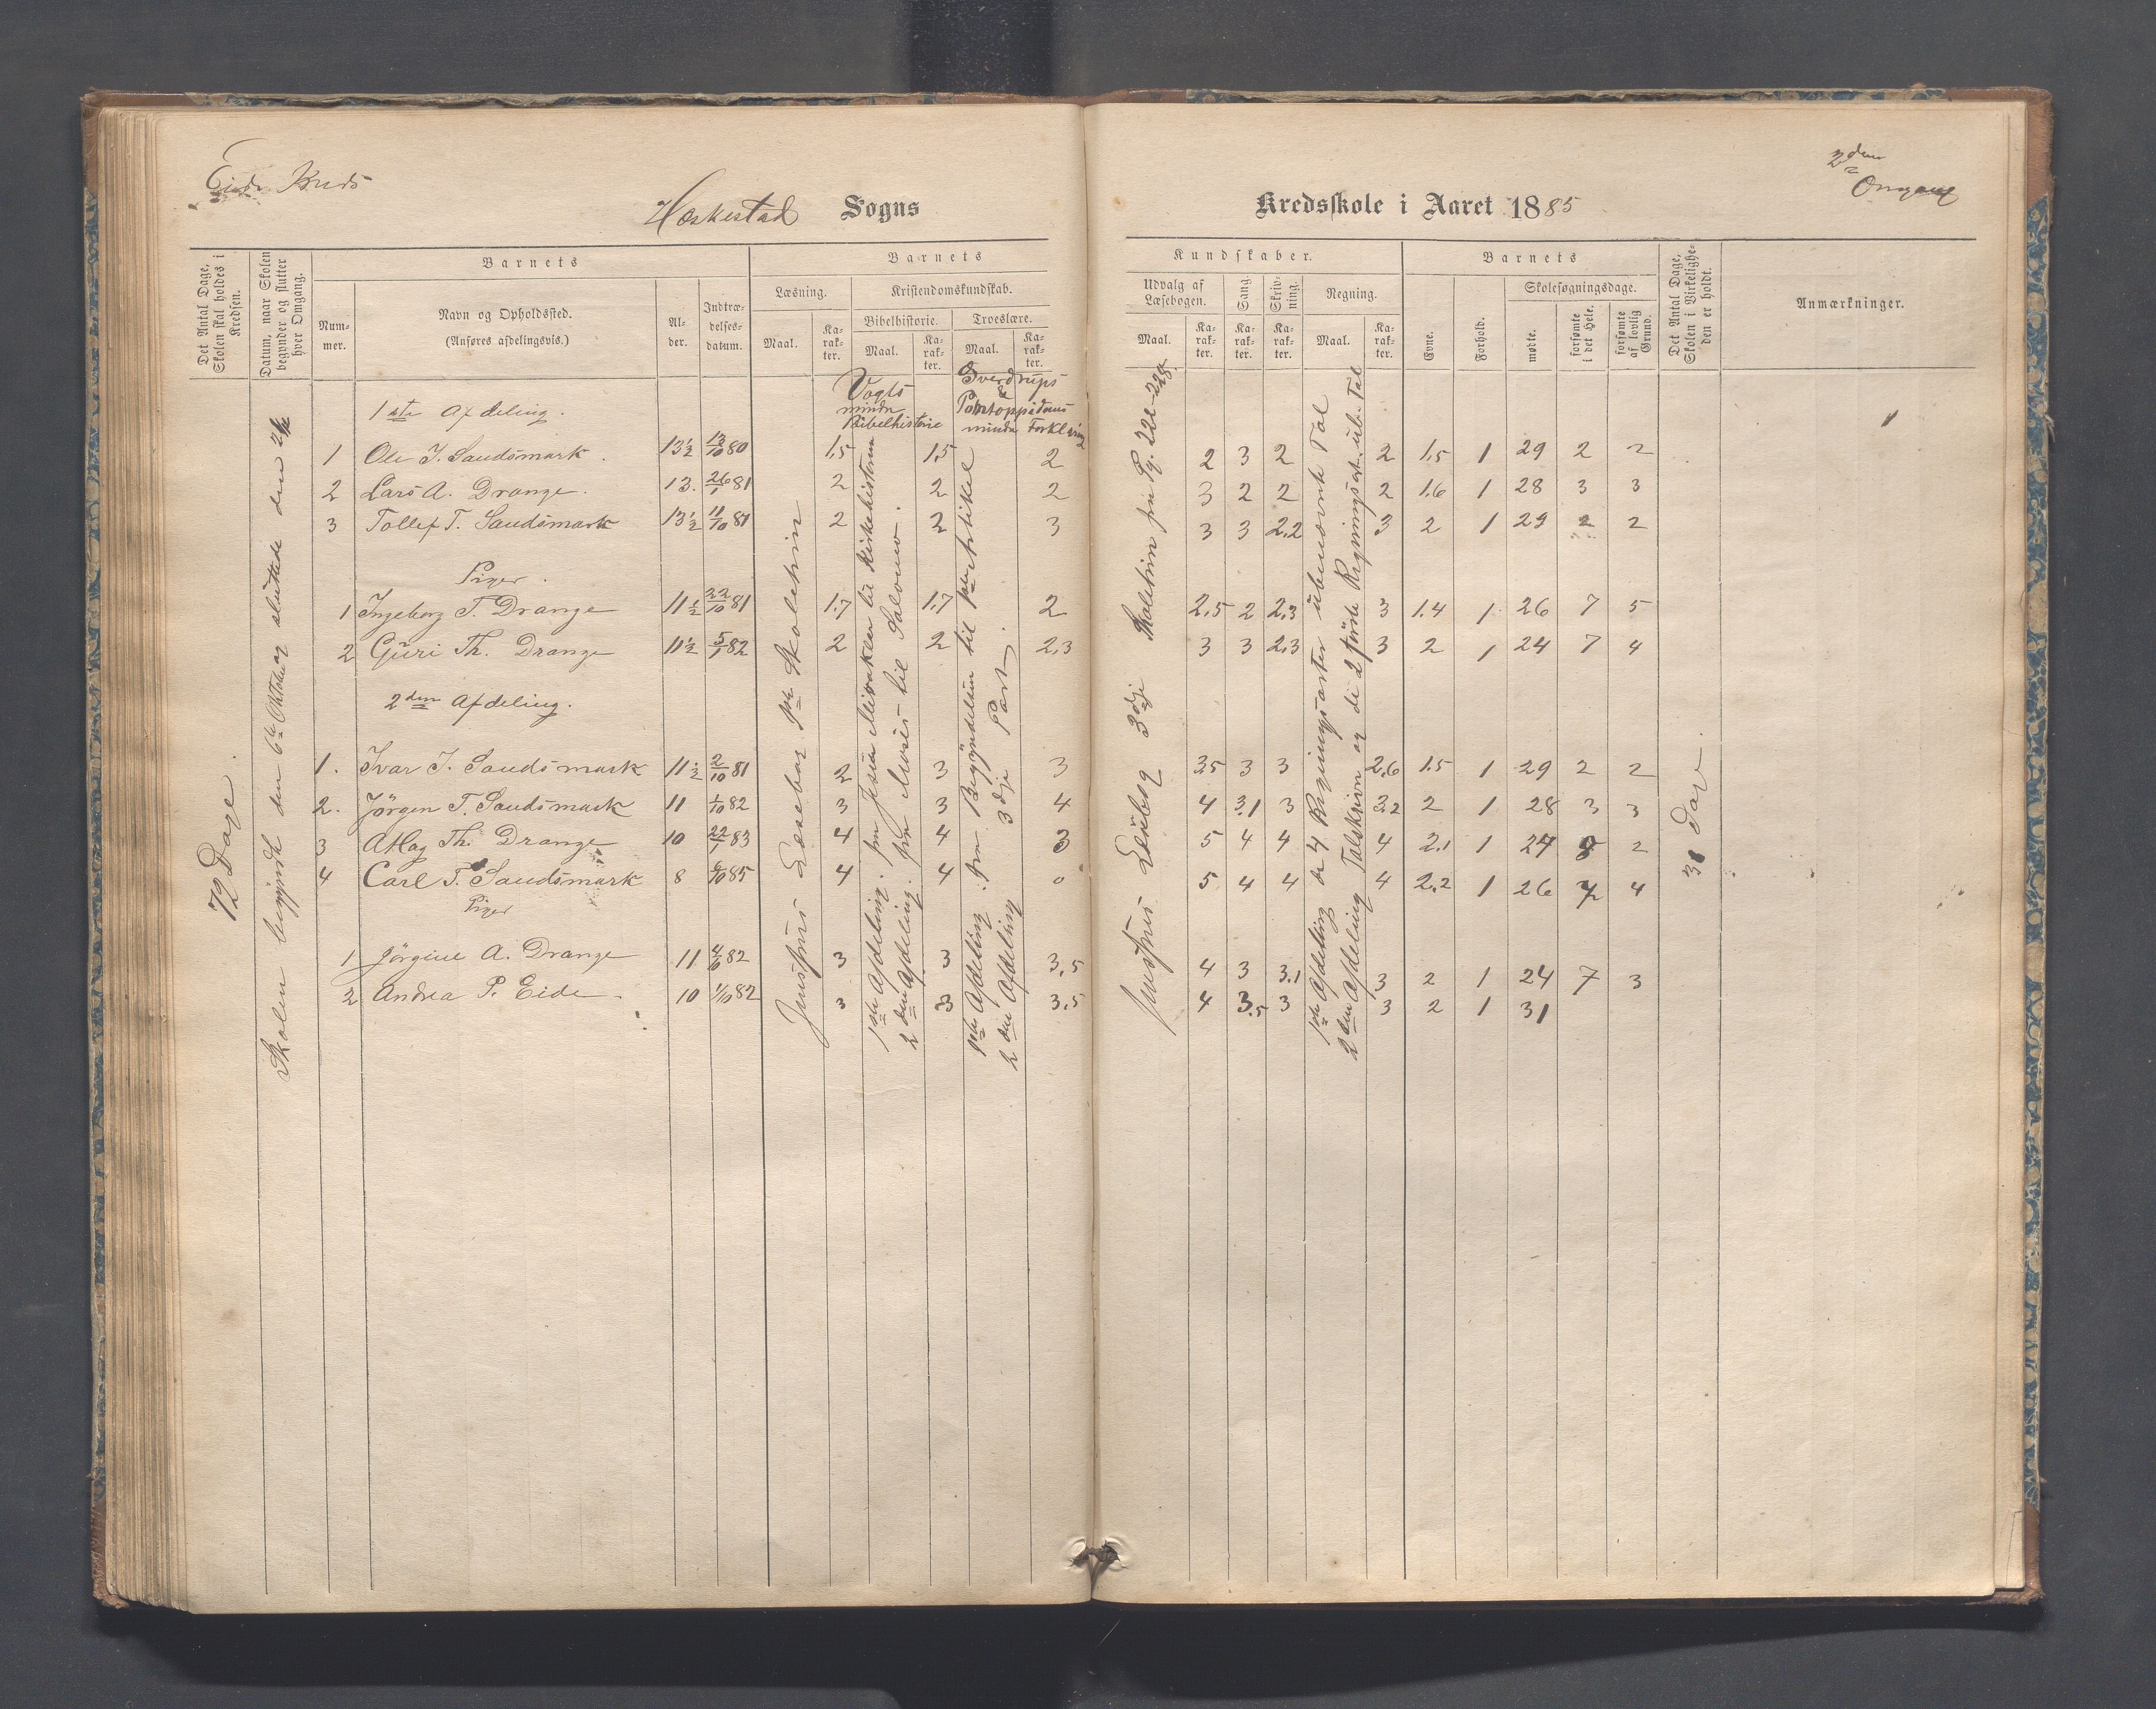 Eide Kreds
Heskestad Sogns
Kredsskole i Aaret 1885
2den Omgang
Det Antal Dage, Skolen skal holdes i Kredsen.
Datum, naar Skolen begynder og slutter hver Omgang.
Barnets
Nummer.
Navn og Opholdssted.
(Anføres afdelingsvis.)
Alder.
Indtrædelsesdatum.
Barnets
Læsning.
Maal.
Karakter.
Kristendomskundskab.
Bibelhistorie.
Maal.
Karakter.
Troeslære.
Maal.
Karakter.
Kundskaber.
Udvalg af Læsebogen.
Maal.
Karakter.
Sang.
Karakter.
Skrivning.
Karakter.
Regning.
Maal.
Karakter.
Barnets
Evne.
Forhold.
Skolesøgningsdage.
mødte.
forsømte i det Hele.
forsømte af lovlig Grund.
Det Antal Dage, Skolen i Virkeligheden er holdt.
Anmærkninger.
72 Dage.
Skolen begyndte den 6te Oktober og sluttede den
Vogts mindre Bibelhistorie
Sverdrups Pontoppidans mindre Forklaring
1ste Afdeling.
1 Ole J. Saudsmark. 13½ 13/10 80 1.5 1.5 2 2 3 2 2 1.5 1 29 2 2
2 Lars A. Drange. 13. 26/1 81 2 2 2 3 2 2 2 1.6 1 28 3 3
3 Tollef T. Saudsmark 13½ 11/10 81 2 2 3 3 3 2.2 3 2 1 29 2 2
Piger.
1 Ingeborg T. Drange 11½ 22/10 81 1.7 1.7 2 2.5 2 2.3 3 1.4 1 26 7 5
2 Guri Th. Drange 11½ 5/1 82 2 2 2.3 3 3 2.3 3 2 1 24 7 4
2den Afdeling.
1. Ivar J. Saudsmark 11½ 2/10 81 2 3 3 3.5 3 3 2.6 1.5 1 29 2 2
2. Jörgen T. Saudsmark 11 1/10 82 3 3 4 4 3.1 3 3.2 2 1 28 3 3
3 Aslag Th. Drange 10 22/1 83 4 4 3 5 4 4 4 2.1 1 27 2
4 Carl T. Saudsmark 8 6/10 85 4 4 0 5 4 4 4 2.2 1 26 7 4
Piger
1 Jörgine A. Drange 11 82 3 3 3.5 4 3 3.1 3 2 1 24 7 3
2 Andrea P. Eide. 10 1/10 82 3 3 3.5 4 3.5 3 3 2 1 31
Jensens Læsebog 1ste Skoletrin
1ste Afdeling. fra Jesu Mirakler til Kirkehistorien
2den Afdeling. fra Moses til Salomo.
1ste Afdeling. fra Begyndelsen til 1ste Artikel
2den Afdeling 3dje Part.
Jensens Læsebog 3dje Skoletrin fra Pg. 222-228.
1ste Afdeling de 4 Regningsarter ubenævnte Tal
2den Afdeling Talskrivn. og de 2 förste Regningsart. ub. Tal
31 Dage.